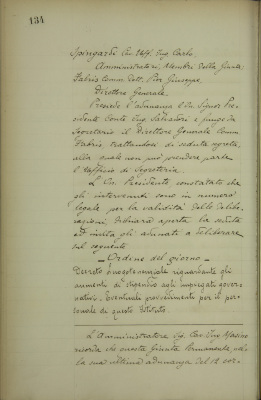 134
Spingardi Cav. Uff. Ing. Carlo
Amministratori, Membri della Giunta
Fabris Comm. Dott. Prof. Giuseppe
Direttore Generale.
Presiede l'adunanza l'On. Signor Pre-
sidente Conte Ing. Salvatori e funge da
Segretario il Direttore Generale Comm.
Fabris, trattandosi di seduta segreta,
alla quale non può prendere parte
l'Ufficio di Segreteria.
L'On. Presidente, constatato che
gli intervenuti sono in numero
legale per la validità delle delibe-
razioni, dichiara aperta la seduta
ed invita gli adunati a deliberare
sul seguente
Ordine del giorno
Decreto riguardante gli
aumenti di stipendio agli impiegati gover-
nativi. Eventuali provvedimenti per il per-
sonale di questo Istituto.
L'Amministratore Sig. Cav. Ing. Masino
ricorda che questa Giunta Permanente, nel-
la sua ultima adunanza del 12 cor-